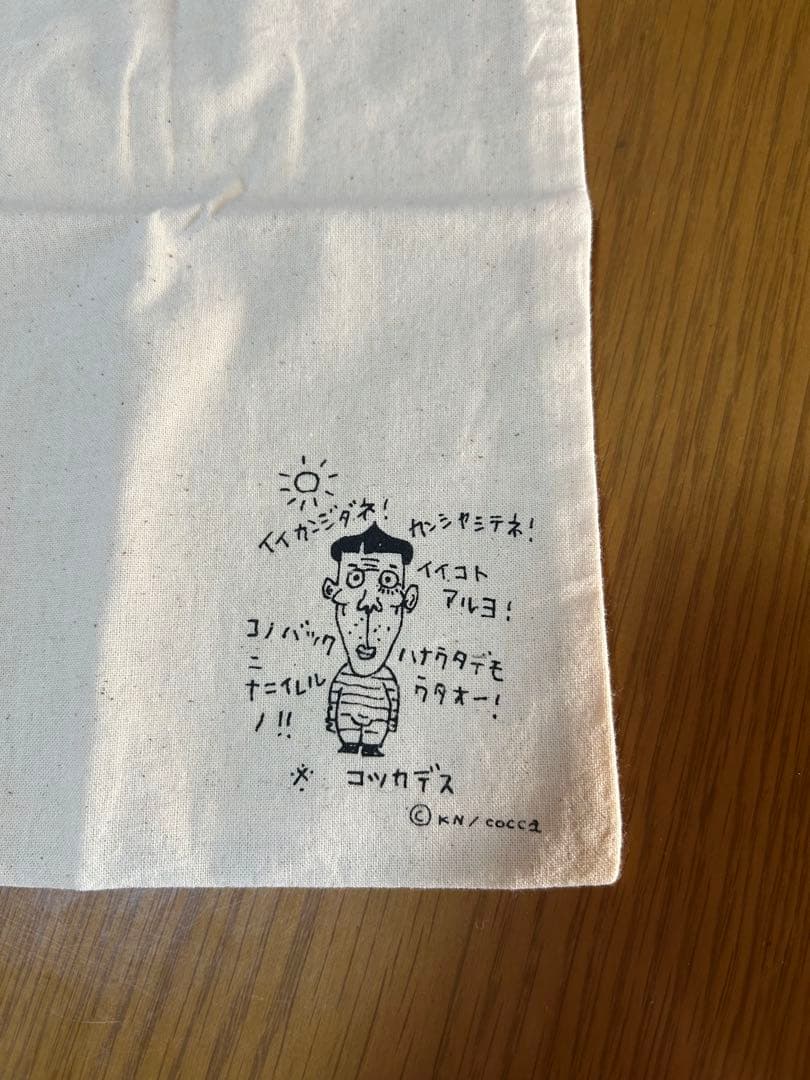 イイカンジダネ!
カンシャシテネ!
イイコト
アルヨ!
コノバック
ニ
ナニイレル
ノ!!
ハナウタデモ
ウタオー!
※ コッカデス
©KN/COCCA